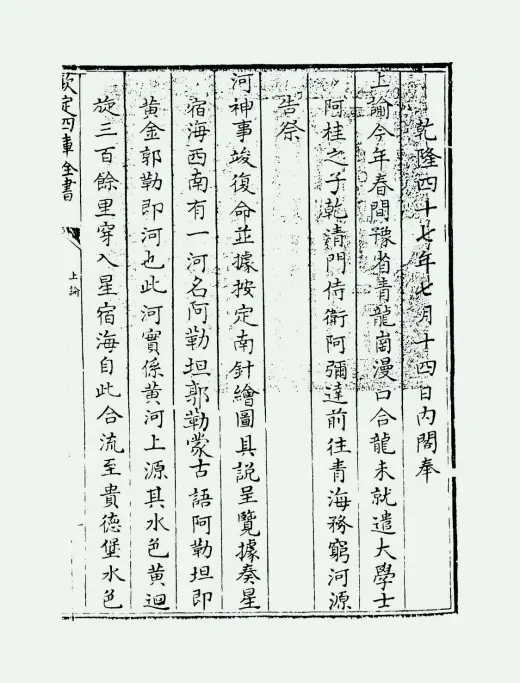 乾隆四十七年七月十四日內閣奉
上諭今年春間豫省青龍崗漫口合龍未就遣大學士
阿桂之子乾清門侍衛阿彌達前往青海務窮河源
告祭
河神事竣復命並據按定南針繪圖具說呈覽據奏星
宿海西南有一河名阿勒坦郭勒蒙古語阿勒坦即
黃金郭勒即河也此河實係黃河上源其水色黃迴
旋三百餘里穿入星宿海自此合流至貴德堡水色
欽定四庫全書
上諭